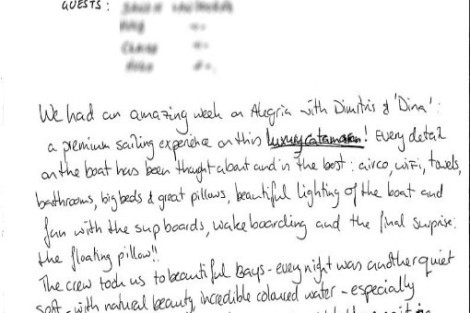 GUESTS :
We had an amazing week on Alegria with Dimitris & 'Dina' :
a premium sailing experience on this luxury catamaran! Every detail
on the boat has been thought about and in the best : airco, wifi, towels,
bathrooms, big beds & great pillows, beautiful lighting of the boat and
fun with the sup boards, wakeboarding and the final surprise:
the floating pillow!!
The crew took us to beautiful bays - every night was another quiet
spot - with natural beauty, incredible coloured water - especially